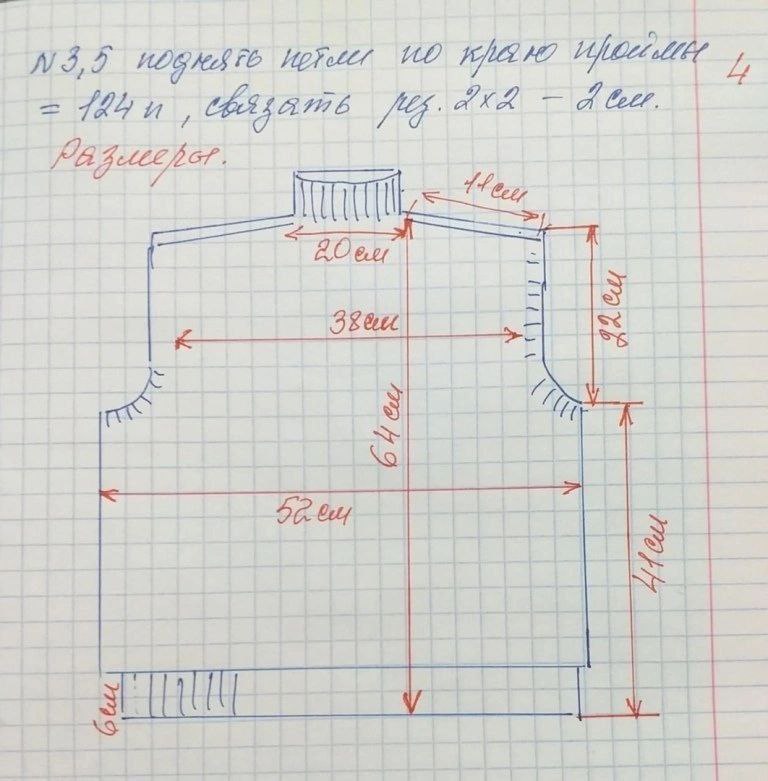 N 3,5 поднять петли по краю проймы
= 124 п, связать рез. 2x2 - 2 см.
4
Размеры.
11см
20см
38см
22см
64см
52см
41см
6см